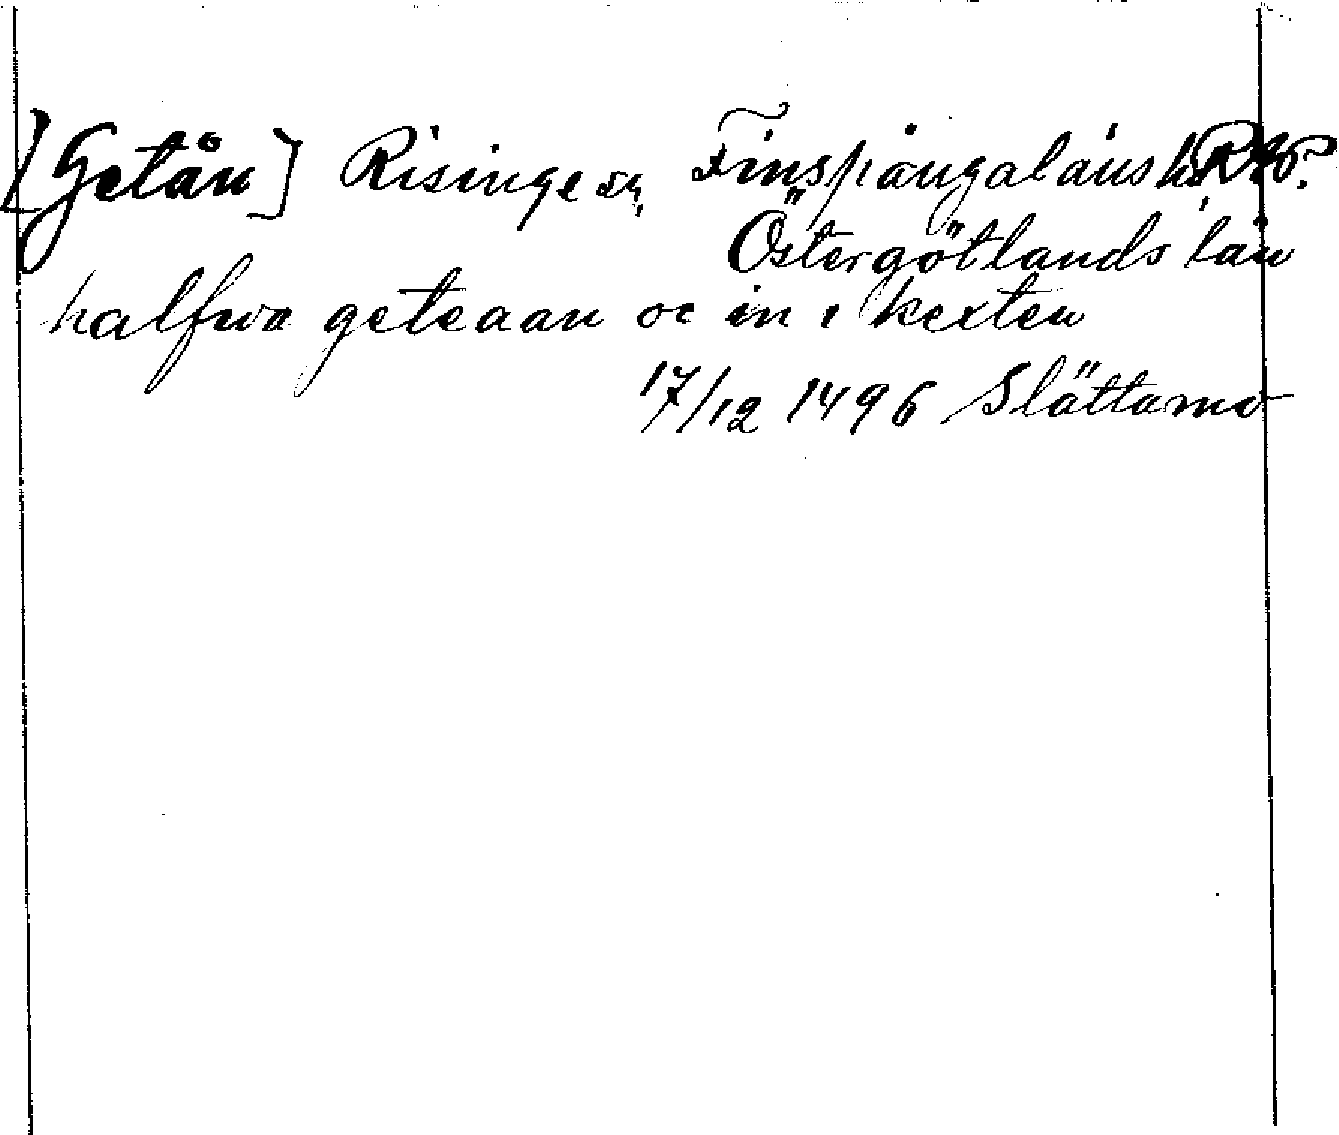 [Getån] Risinge sn, Finspångaläns hd, RAp.
Östergötlands län
halfwa geteaan oc in i kexten
17/12 1496 Slättamo